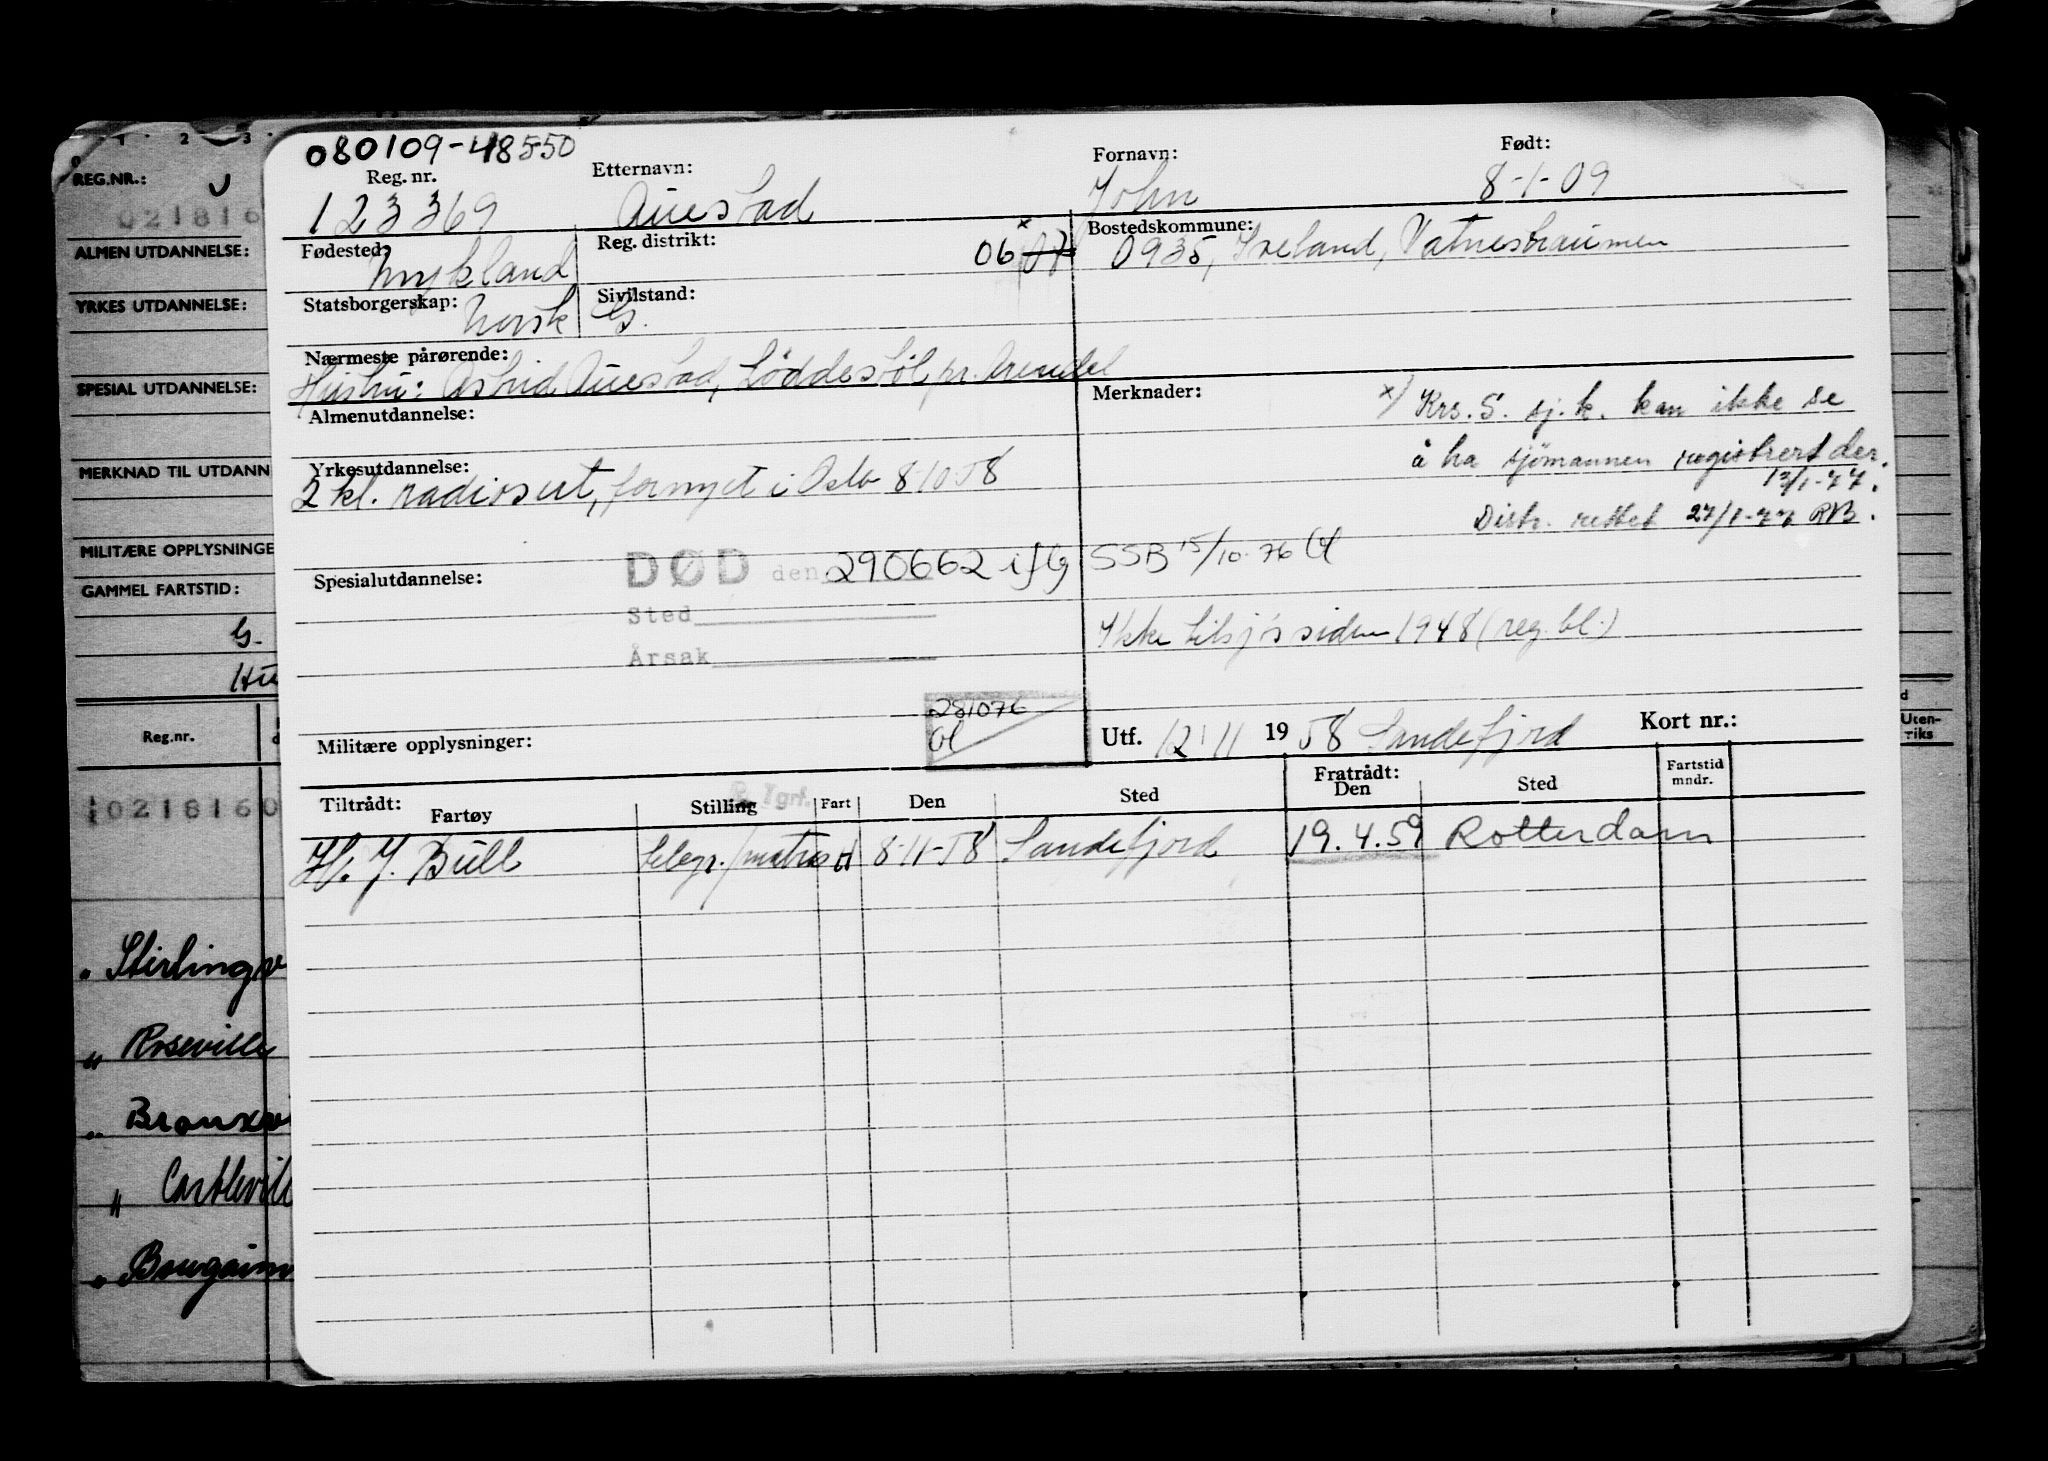 080109-48550
Reg. nr. Etternavn: Fornavn: Født:
123369 Auestad John 8-1-09
Fødested: Mykland Reg. distrikt: 06 07 x Bostedskommune: 0935, Iveland, Vatneshaumen
Statsborgerskap: Norsk Sivilstand: G.
Nærmeste pårørende:
Hustru: Astrid Auestad, Løddesøl pr. Arendal
Almenutdannelse:
Merknader: x) Krs. S. sj.k. kan ikke se
å ha sjømannen registrert der.
13/1-77.
Distr. rettet 27/1-77 RB.
Yrkesutdannelse:
2 kl. radiosert, fornyet i Oslo 8-10-58
DØD den 290662 ifg SSB 15/10-76
Spesialutdannelse:
Sted
Årsak
Ikke tilsjøs siden 1948 (reg. bl.)
281076
Militære opplysninger:
Utf. 12/11 1958 Sandefjord Kort nr.:
Tiltrådt: Fartøy Stilling Fart Den Sted Fratrådt: Den Sted Fartstid mndr.
H. J. Bull telegr./matros H 8-11-58 Sandefjord 19.4.59 Rotterdam
1 2 3
REG.NR.:
021816
ALMEN UTDANNELSE:
YRKES UTDANNELSE:
SPESIAL UTDANNELSE:
MERKNAD TIL UTDANN
MILITÆRE OPPLYSNINGE
GAMMEL FARTSTID:
G.
Hu
Reg.nr.
0218160
" Stirlingv
" Roseville
" Bronxvi
" Castlevill
" Bougainv
Uten-
riks